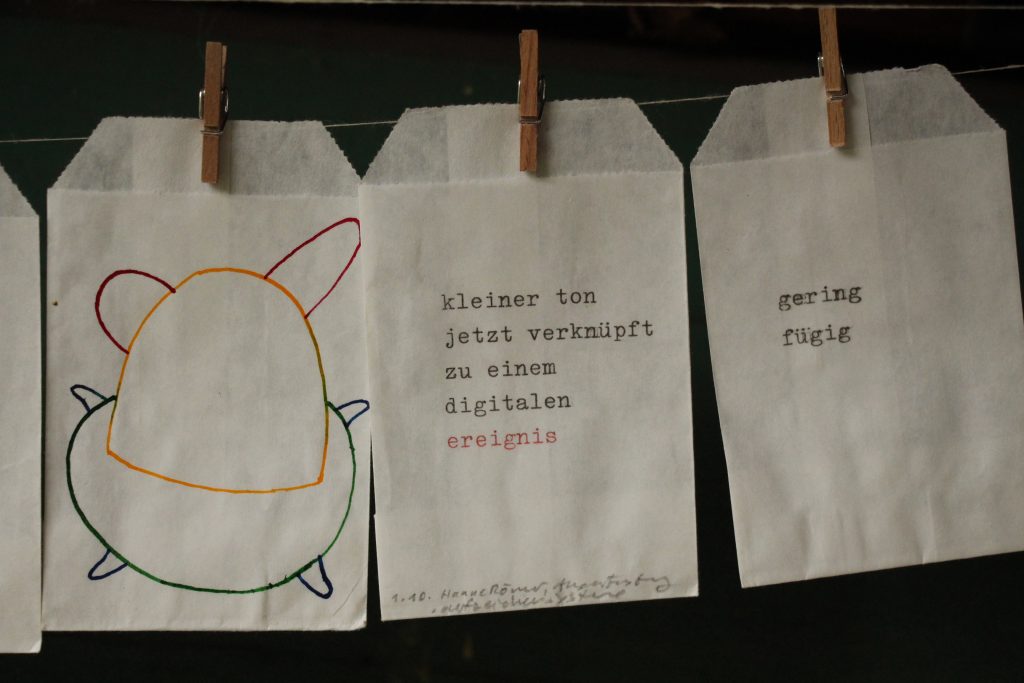 kleiner ton
jetzt verknüpft
zu einem
digitalen
ereignis
1.10. Hanne Römer,
gering
fügig